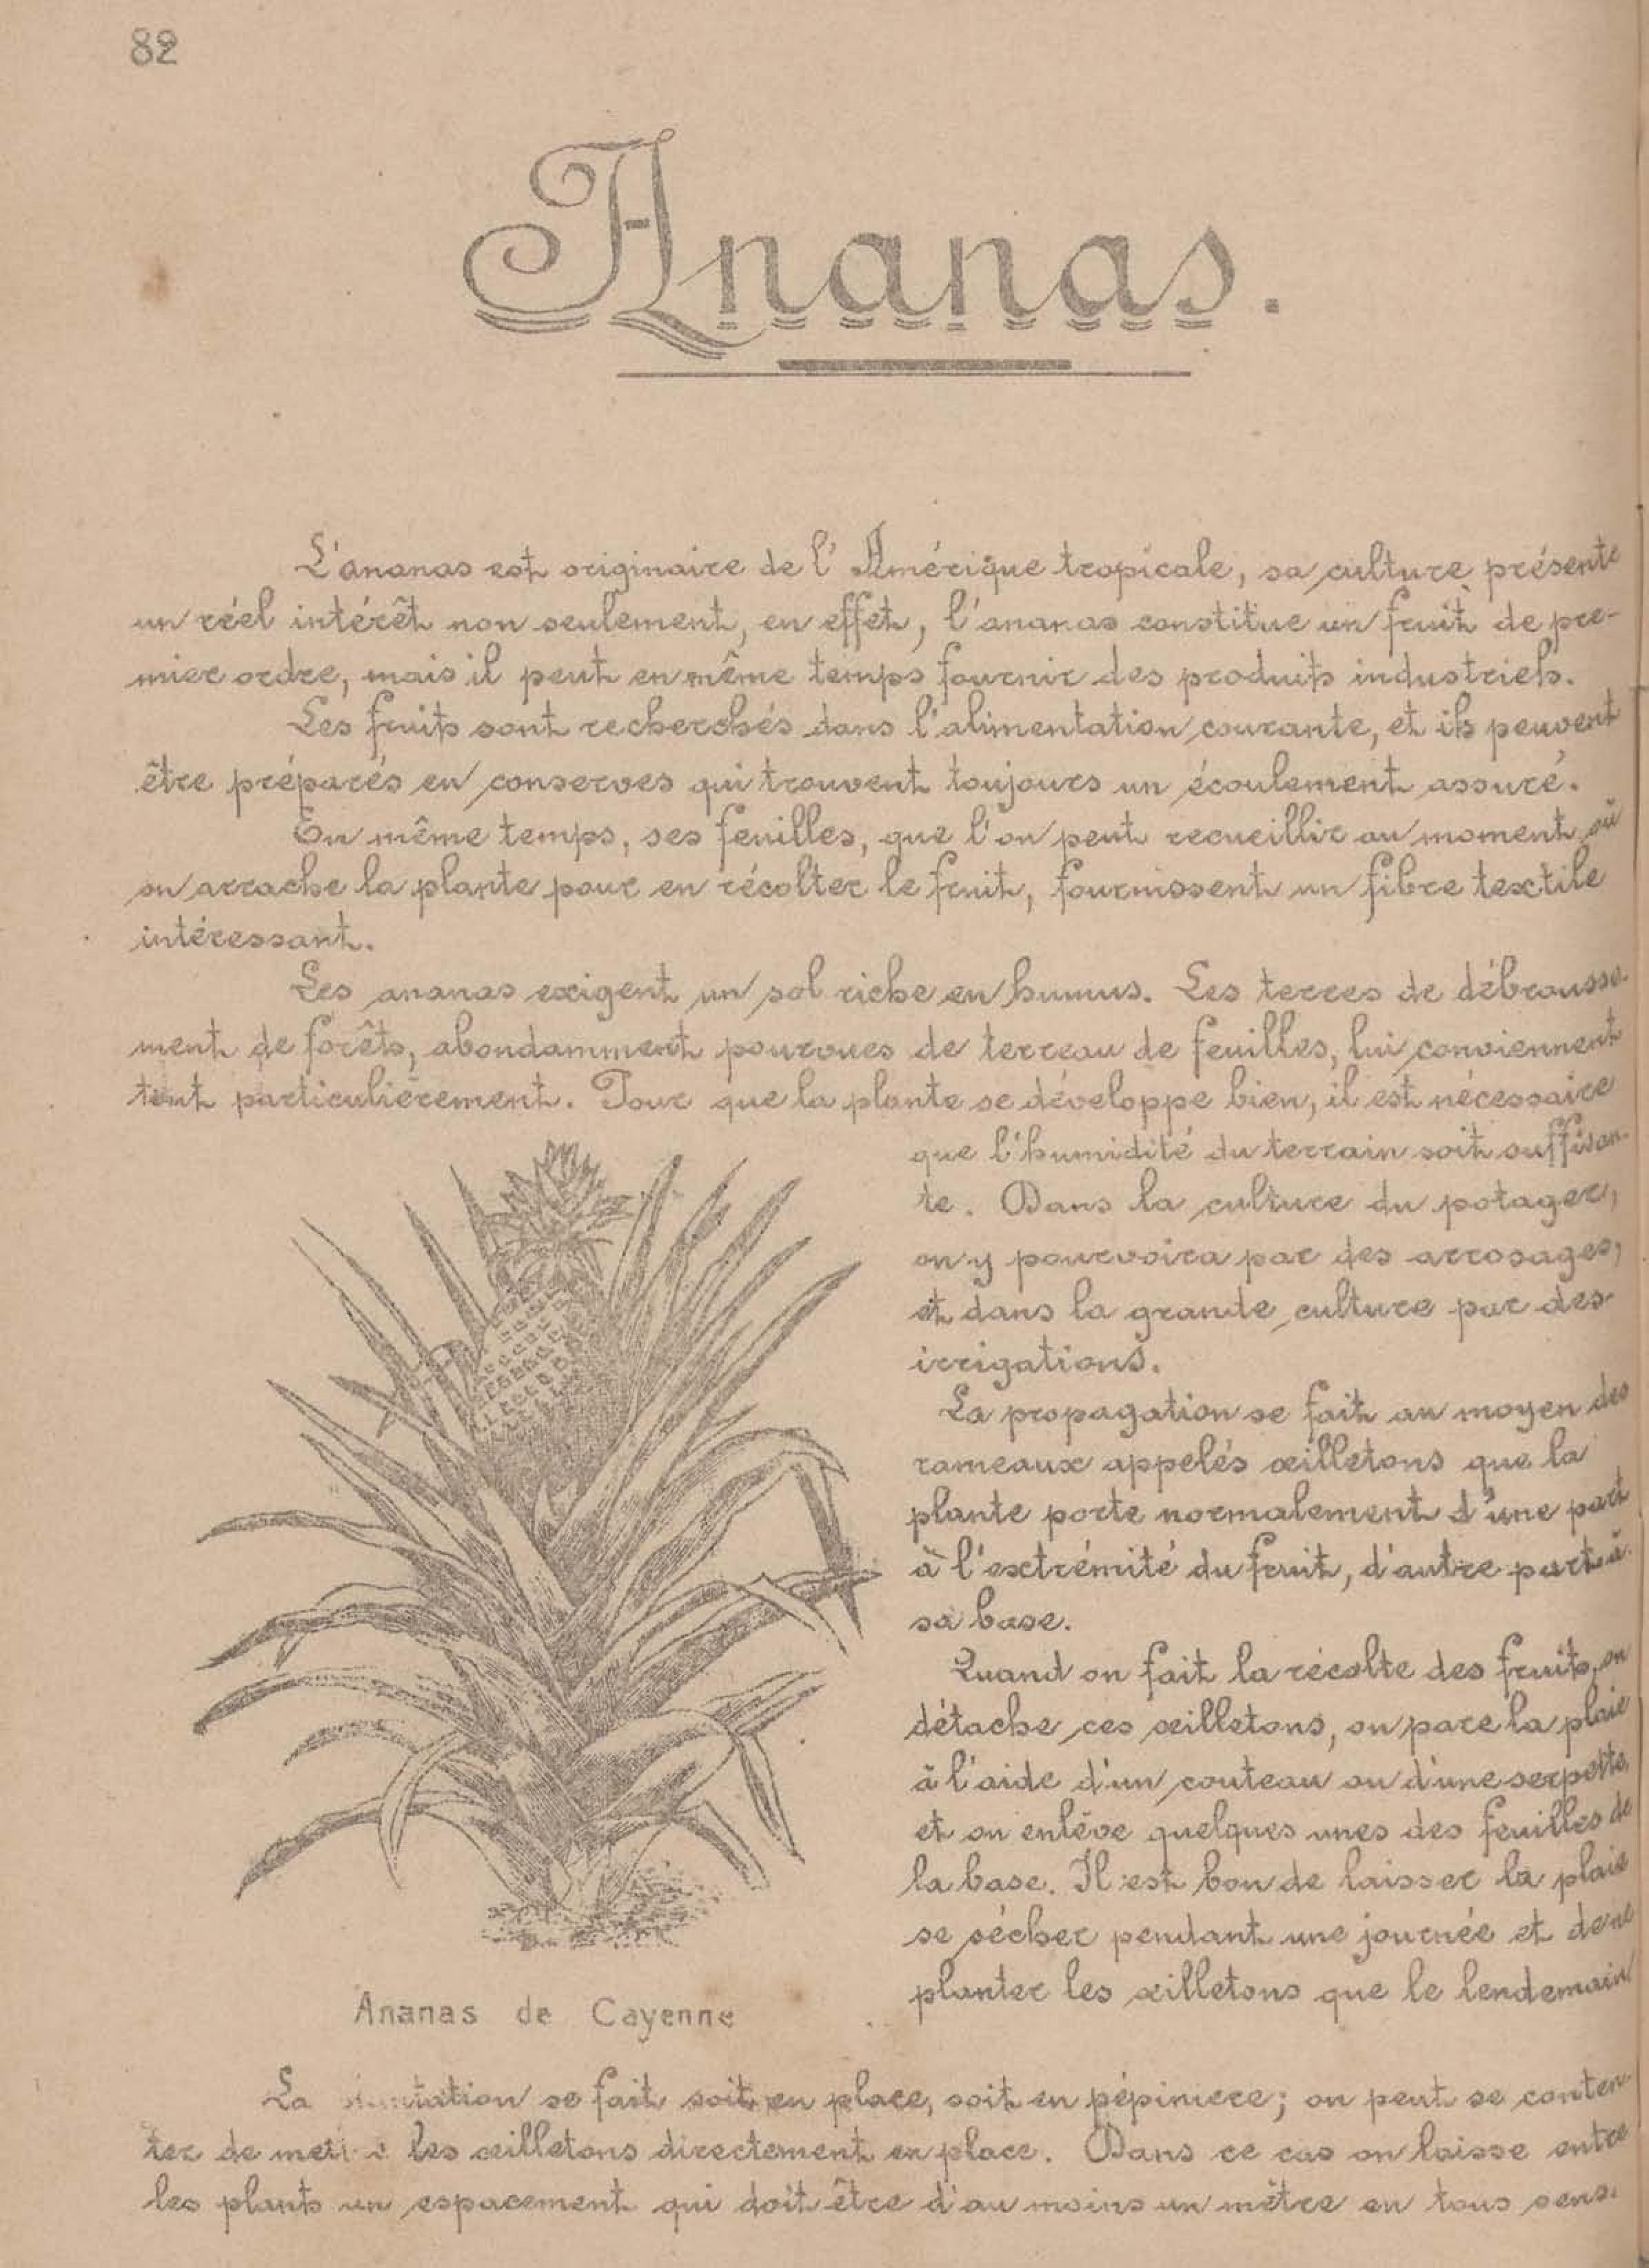 82
Ananas.
L'ananas est originaire de l'Amérique tropicale, sa culture présente
un réel intérêt non seulement, en effet, l'ananas constitue un fruit de pre-
mier ordre, mais il peut en même temps fournir des produits industriels.
Les fruits sont recherchés dans l'alimentation courante, et ils peuvent
être préparés en conserves qui trouvent toujours un écoulement assuré.
En même temps, ses feuilles, que l'on peut recueillir au moment où
on arrache la plante pour en récolter le fruit, fournissent un fibre textile
intéressant.
Les ananas exigent un sol riche en humus. Les terres de débrousse-
ment de forêts, abondamment pourvues de terreau de feuilles, lui conviennent
tout particulièrement. Pour que la plante se développe bien, il est nécessaire
que l'humidité du terrain soit suffisan-
te. Dans la culture du potager,
on y pourvoira par des arrosages,
et dans la grande culture par des
irrigations.
La propagation se fait au moyen des
rameaux appelés œilletons que la
plante porte normalement d'une part
à l'extrémité du fruit, d'autre part à
sa base.
Quand on fait la récolte des fruits, on
détache ces œilletons, on pare la plaie
à l'aide d'un couteau ou d'une serpette,
et on enlève quelques unes des feuilles de
la base. Il est bon de laisser la plaie
se sécher pendant une journée et de ne
planter les œilletons que le lendemain
Ananas de Cayenne
La se fait soit en place, soit en pépiniere; on peut se conten-
ter de mettre les œilletons directement en place. Dans ce cas on laisse entre
les plants un espacement qui doit être d'au moins un mètre en tous sens.